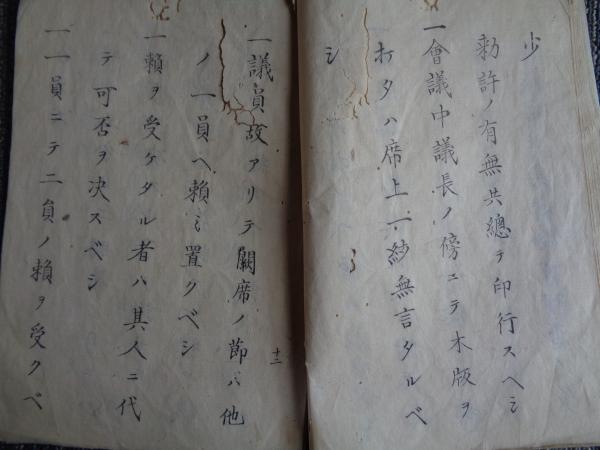 少
勅許ノ有無共總テ印行スヘシ
一會議中議長ノ傍ニテ木版ヲ
打タハ席上一紗無言タルベ
シ
一議員故アリテ闕席ノ節ハ他
ノ一員ヘ賴ミ置クベシ
一賴ヲ受ケタル者ハ其人ニ代
テ可否ヲ決スベシ
一一員ニテ二員ノ賴ヲ受クベ
十二